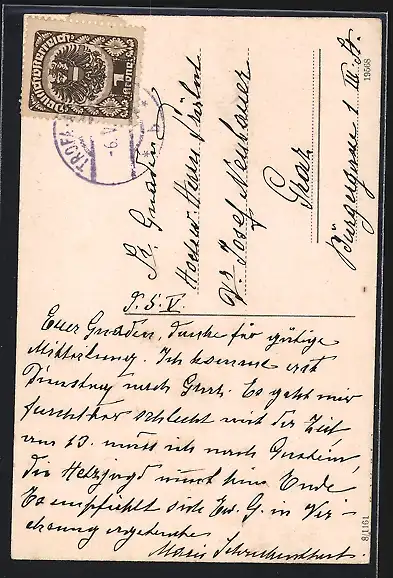 Deutschösterreich
1
Krone
TROFA
-6.V
Sr. Gnaden
Hochw. Herrn Prälat
Dr Josef Neuhauer
Graz
Bürgergasse 1 III. St.
19568
P. S. V.
Euer Gnaden, danke für gütige
Mitteilung. Ich komme erst
Dienstag nach Graz. Es geht mir
furchtbar schlecht mit der Zeit,
am 13. muss ich nach
die Hetzjagd nimmt kein Ende
Es empfiehlt sich Ew. G. in Ver-
ehrung ergebenste
Marie
8/1161